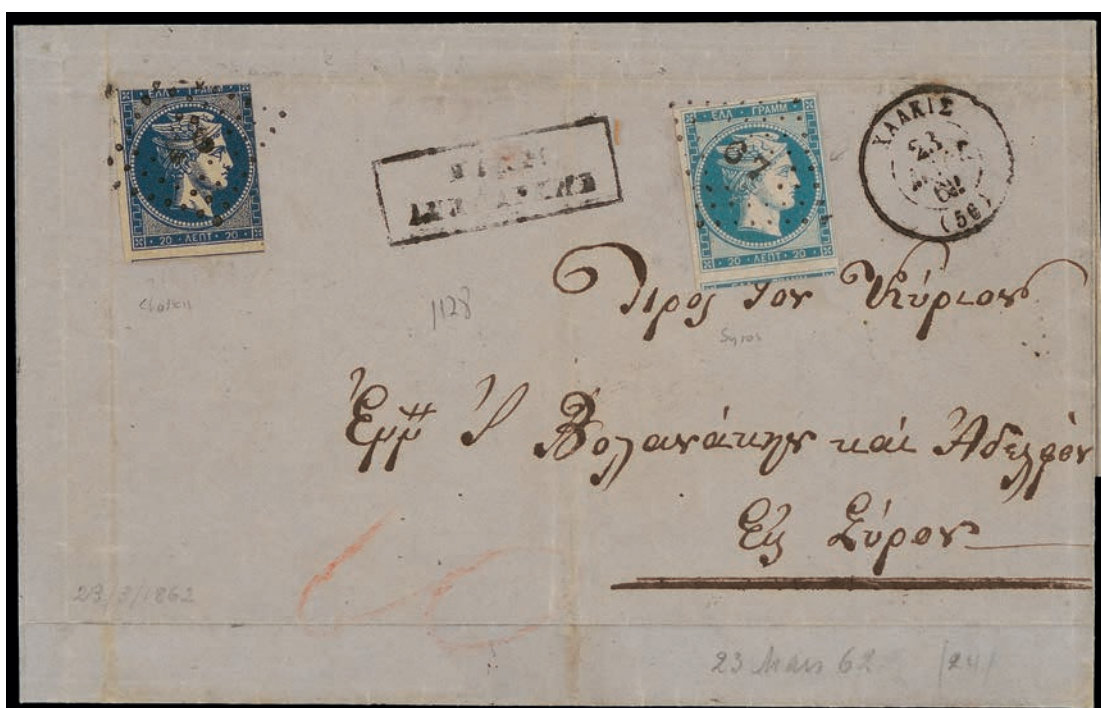 ΕΛΛ ΓΡΑΜΜ
20 ΛΕΠΤ 20
ΕΛΛ ΓΡΑΜΜ
67
20 ΛΕΠΤ 20
ΧΑΛΚΙΣ
23
62
(56)
Chalkis
1128
Syros
Προς τον Κύριον
Εμμ Ι Βολανάκην και Αδελφόν
Εις Σύρον
23/3/1862
23 Mars 62 /24/